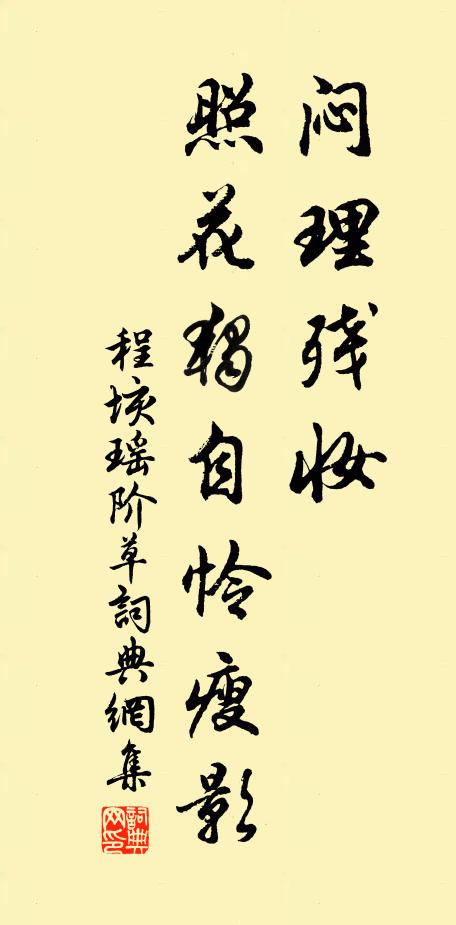 闷理残妆
照花独自怜瘦影
程垓瑶阶草詞典網集
詞典网印